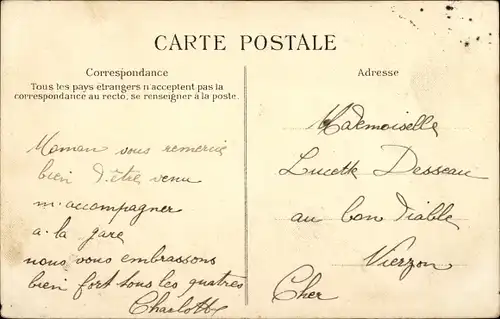 CARTE POSTALE
Correspondance
Tous les pays étrangers n'acceptent pas la
correspondance au recto, se renseigner à la poste.
Adresse
Maman vous remercie
bien d'être venu
m'accompagner
a la gare
nous vous embrassons
bien fort tous les quatres
Charlotte
Mademoiselle
Lucette Desseau
au bon Diable
Vierzon
Cher